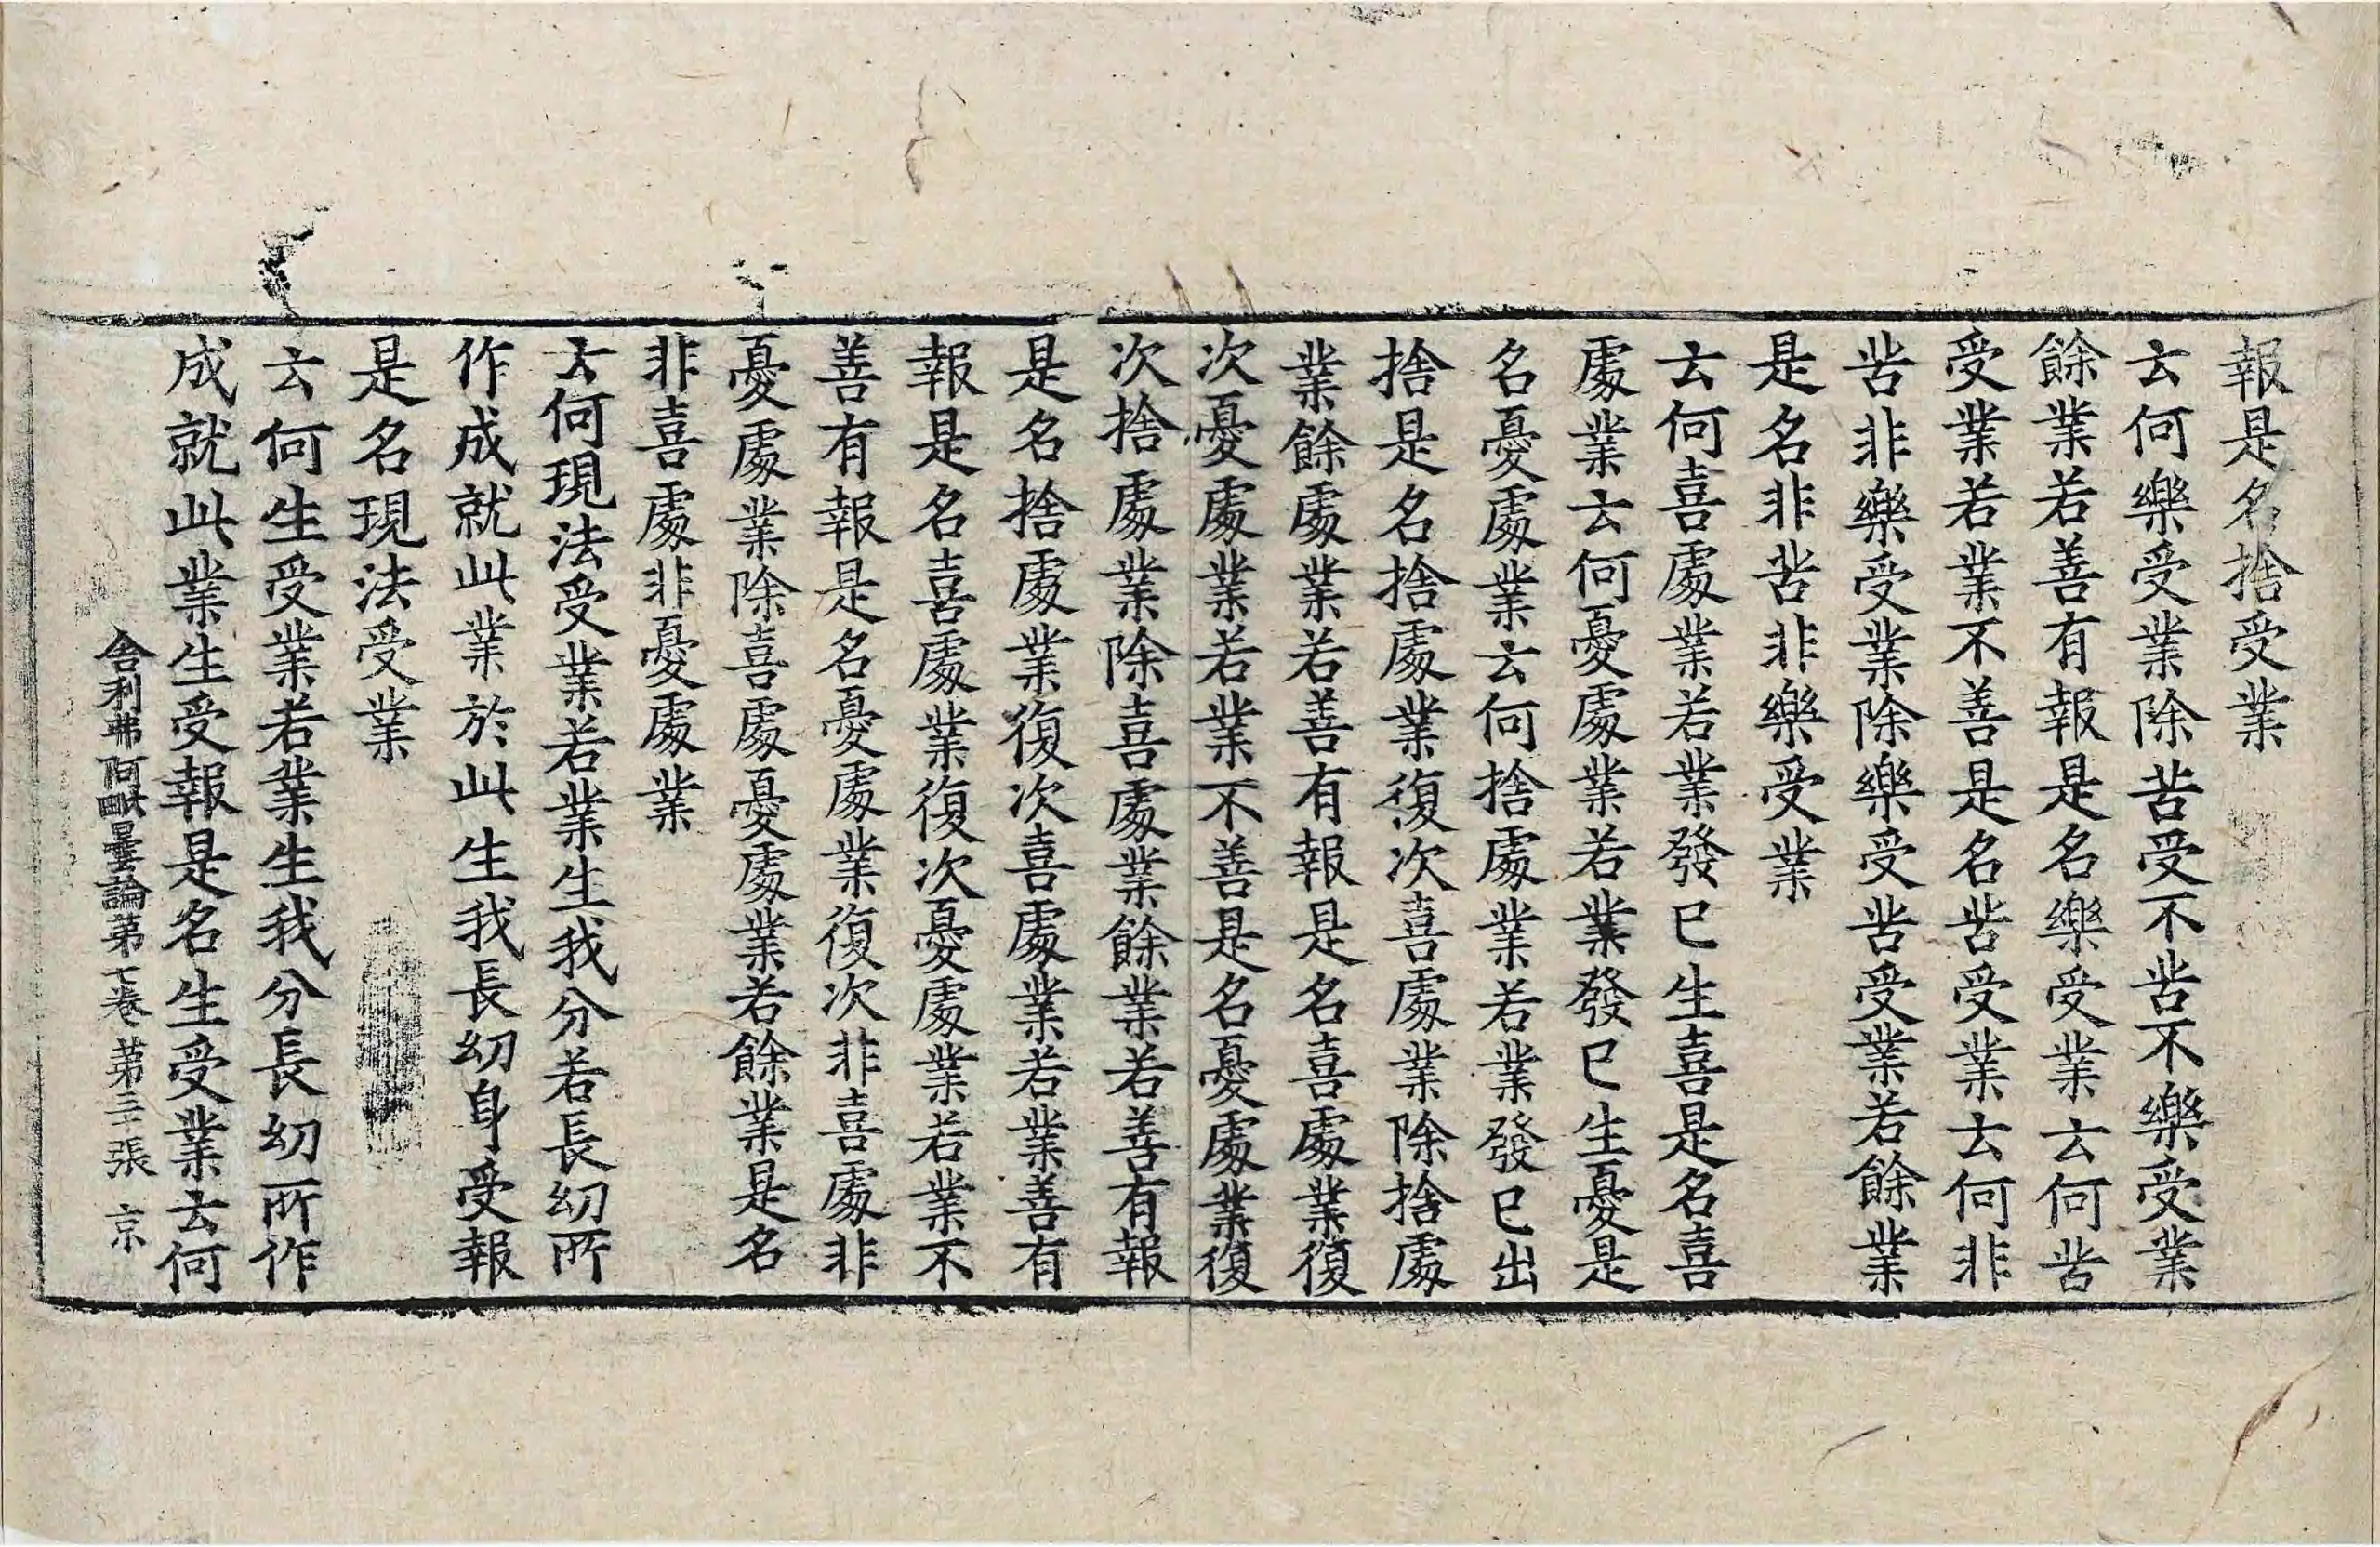 報是名捨受業
云何樂受業除苦受不苦不樂受業
餘業若善有報是名樂受業云何苦
受業若業不善是名苦受業云何非
苦非樂受業除樂受苦受業若餘業
是名非苦非樂受業
云何喜處業若業發已生喜是名喜
處業云何憂處業若業發已生憂是
名憂處業云何捨處業若業發已出
捨是名捨處業復次喜處業除捨處
業餘處業若善有報是名喜處業復
次憂處業若業不善是名憂處業復
次捨處業除喜處業餘業若善有報
是名捨處業復次喜處業若業善有
報是名喜處業復次憂處業若業不
善有報是名憂處業復次非喜處非
憂處業除喜處憂處業若餘業是名
非喜處非憂處業
云何現法受業若業生我分若長幼所
作成就此業於此生我長幼身受報
是名現法受業
云何生受業若業生我分長幼所作
成就此業生受報是名生受業云何
舍利弗阿毗曇論第七卷 第三十張 京